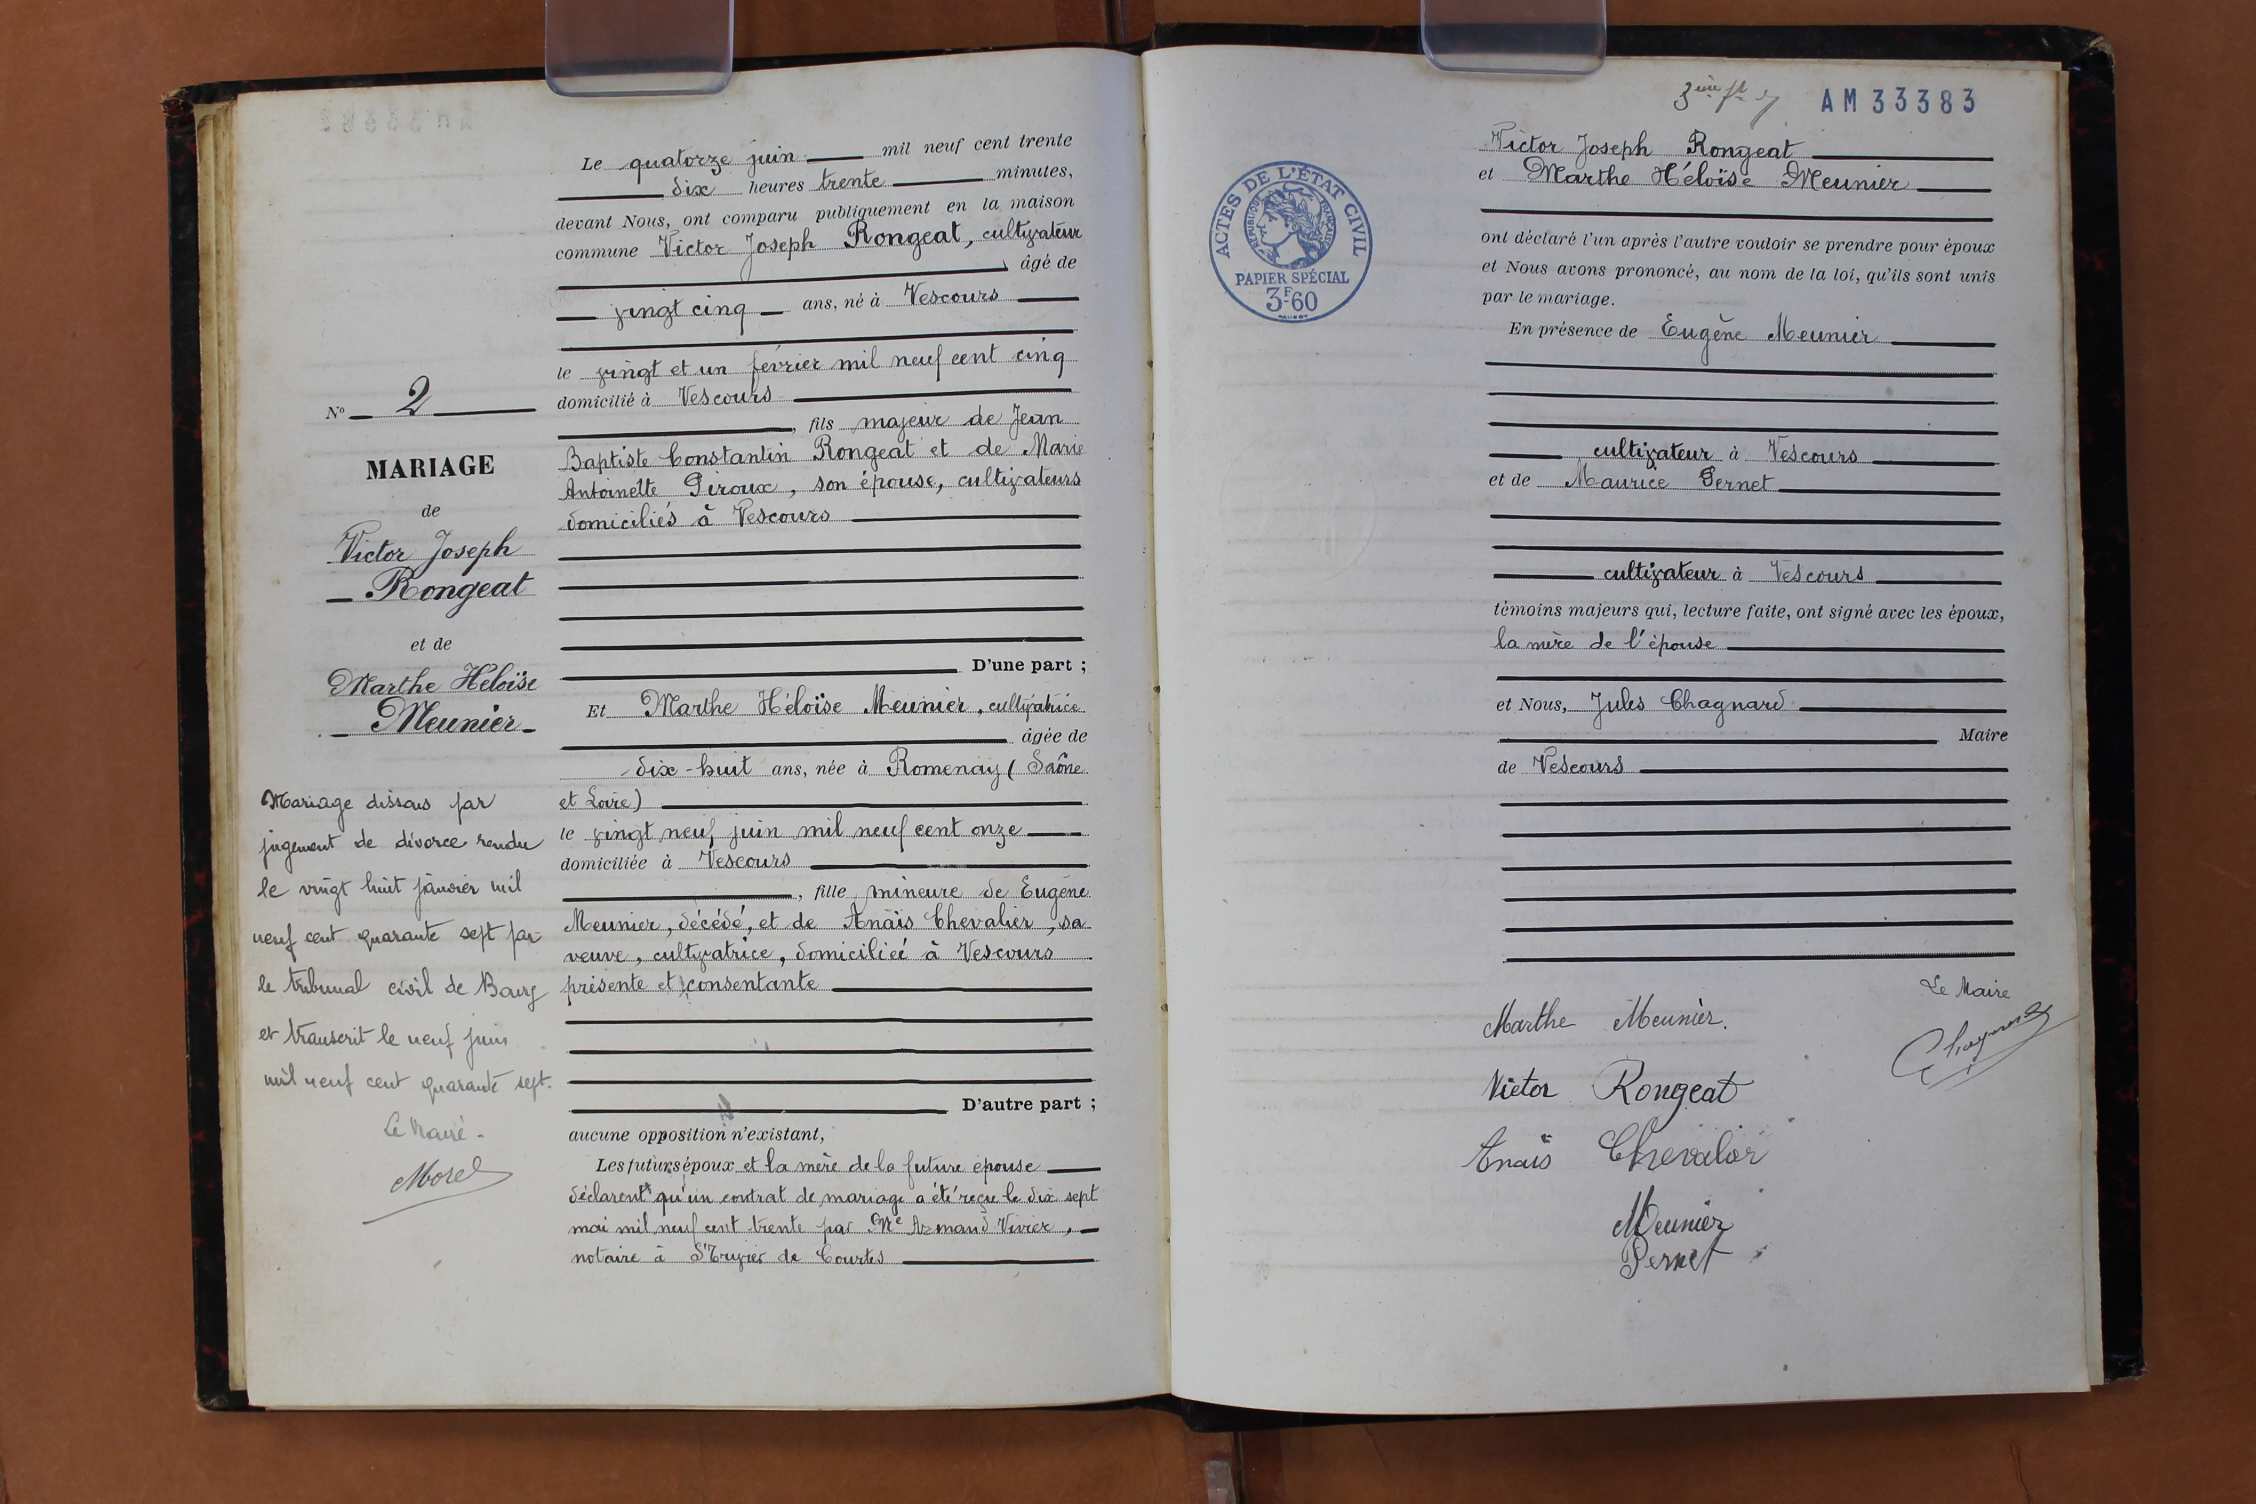 N° 2
MARIAGE
de
Victor Joseph
Rongeat
et de
Marthe Héloïse
Meunier
Mariage dissous par
jugement de divorce rendu
le vingt huit janvier mil
neuf cent quarante sept par
le tribunal civil de Bourg
et transcrit le neuf juin
mil neuf cent quarante sept.
Le Maire
Morel
Le quatorze juin mil neuf cent trente
dix heures trente minutes,
devant Nous, ont comparu publiquement en la maison
commune Victor Joseph Rongeat, cultivateur
âgé de
vingt cinq ans, né à Vescours
le vingt et un février mil neuf cent cinq
domicilié à Vescours
, fils majeur de Jean
Baptiste Constantin Rongeat et de Marie
Antoinette Piroux, son épouse, cultivateurs
domiciliés à Vescours
D'une part ;
Et Marthe Héloïse Meunier, cultivatrice
âgée de
dix-huit ans, née à Romenay (Saône
et Loire)
le vingt neuf juin mil neuf cent onze
domiciliée à Vescours
, fille mineure de Eugène
Meunier, décédé, et de Anaïs Chevalier, sa
veuve, cultivatrice, domiciliée à Vescours
présente et consentante
D'autre part ;
aucune opposition n'existant,
Les futurs époux et la mère de la future épouse
déclarent qu'un contrat de mariage a été reçu le dix sept
mai mil neuf cent trente par Me Armand Vivier,
notaire à St Trivier de Courtes
AM 33383
ACTES DE L'ÉTAT CIVIL
RÉPUBLIQUE FRANÇAISE
PAPIER SPÉCIAL
3F60
Victor Joseph Rongeat
et Marthe Héloïse Meunier
ont déclaré l'un après l'autre vouloir se prendre pour époux
et Nous avons prononcé, au nom de la loi, qu'ils sont unis
par le mariage.
En présence de Eugène Meunier
cultivateur à Vescours
et de Maurice Pernet
cultivateur à Vescours
témoins majeurs qui, lecture faite, ont signé avec les époux,
la mère de l'épouse
et Nous, Jules Chagnard
Maire
de Vescours
Le Maire
Chagnard
Marthe Meunier.
Victor Rongeat
Anaïs Chevalier
Meunier
Pernet